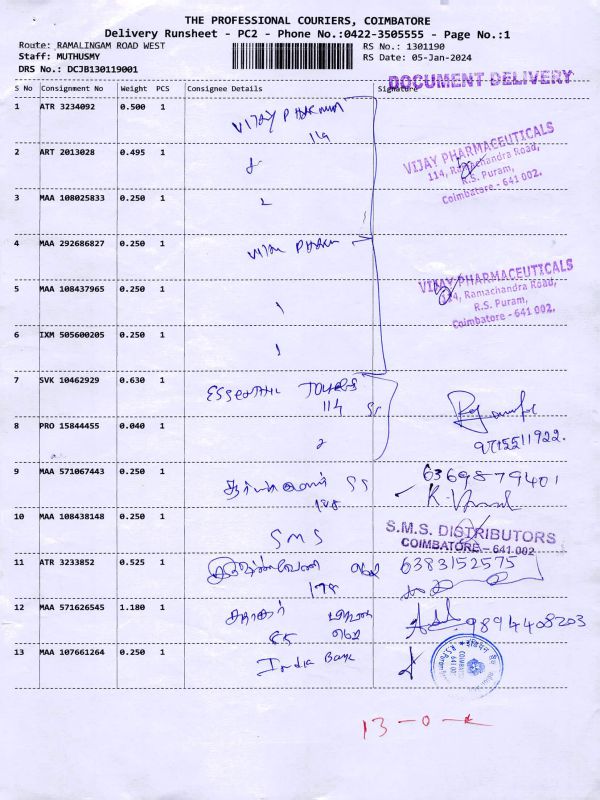 THE PROFESSIONAL COURIERS, COIMBATORE
Delivery Runsheet - PC2 - Phone No.:0422-3505555 - Page No.:1
Route: RAMALINGAM ROAD WEST
RS No.: 1301190
Staff: MUTHUSMY
RS Date: 05-Jan-2024
DRS No.: DCJB130119001
DOCUMENT DELIVERY
S No Consignment No Weight PCS Consignee Details Signature
1 ATR 3234092 0.500 1 VIJAY PHARMA
114
VIJAY PHARMACEUTICALS
114, Ramachandra Road,
R.S. Puram,
Coimbatore - 641 002.
2 ART 2013028 0.495 1
3 MAA 108025833 0.250 1
4 MAA 292686827 0.250 1
VIJAY PHARMACEUTICALS
114, Ramachandra Road,
R.S. Puram,
Coimbatore - 641 002.
5 MAA 108437965 0.250 1
6 IXM 505600205 0.250 1
7 SVK 10462929 0.630 1
114
8 PRO 15844455 0.040 1
9715511922.
9 MAA 571067443 0.250 1
6369879401
10 MAA 108438148 0.250 1 SMS
S.M.S. DISTRIBUTORS
COIMBATORE - 641 002
11 ATR 3233852 0.525 1
6383152575
12 MAA 571626545 1.180 1
9894408203
13 MAA 107661264 0.250 1 India Bank
13 - 0 -